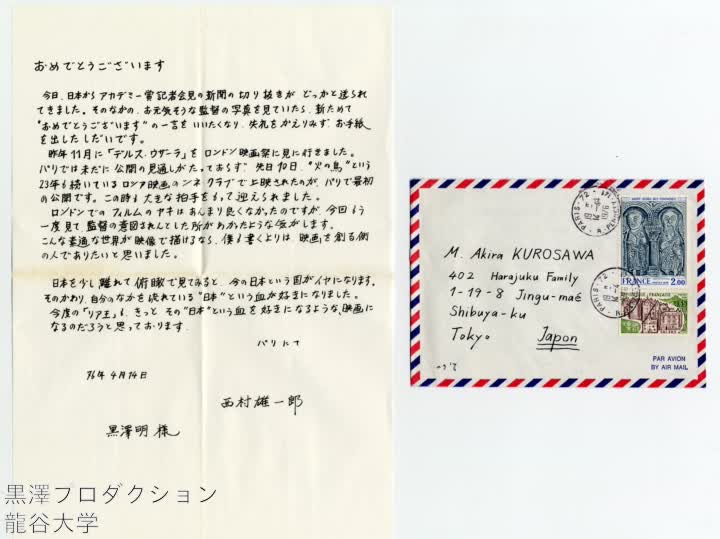 おめでとうございます
今日、日本からアカデミー賞記者会見の新聞の切り抜きがどっかと送られ
てきました。そのなかの、お元気そうな監督の写真を見ていたら、新ためて
"おめでとうございます"の一言をいいたくなり、失礼をかえりみず、お手紙
を出したしだいです。
昨年11月に「デルス・ウザーラ」をロンドン映画祭に見に行きました。
パリでは未だに公開の見通しがたっておらず、先日10日、"火の鳥"という
23年も続いているロシア映画のシネ・クラブで上映されたのが、パリで最初
の公開です。この時も大きな拍手をもって迎えられました。
ロンドンでのフィルムのヤキはあんまり良くなかったのですが、今回もう
一度見て、監督の意図されんとした所がわかったような気がします。
こんな素適な世界が映像で描けるなら、僕も書くよりは映画を創る側
の人でありたいと思いました。
日本を少し離れて俯瞰で見てみると、今の日本という国がイヤになります。
そのかわり、自分のなかを流れている"日本"という血が好きになりました。
今度の「リア王」も、きっとその"日本"という血を好きになるような、映画に
なるのだろうと思っております。
パリにて
76年4月14日
西村雄一郎
黒澤明様
M. Akira KUROSAWA
402 Harajuku Family
1-19-8 Jingu-maé
Shibuya-ku
Tokyo Japon
PARIS-72
1976
FRANCE 2.00
PARIS-72
PAR AVION
BY AIR MAIL
黒澤プロダクション
龍谷大学